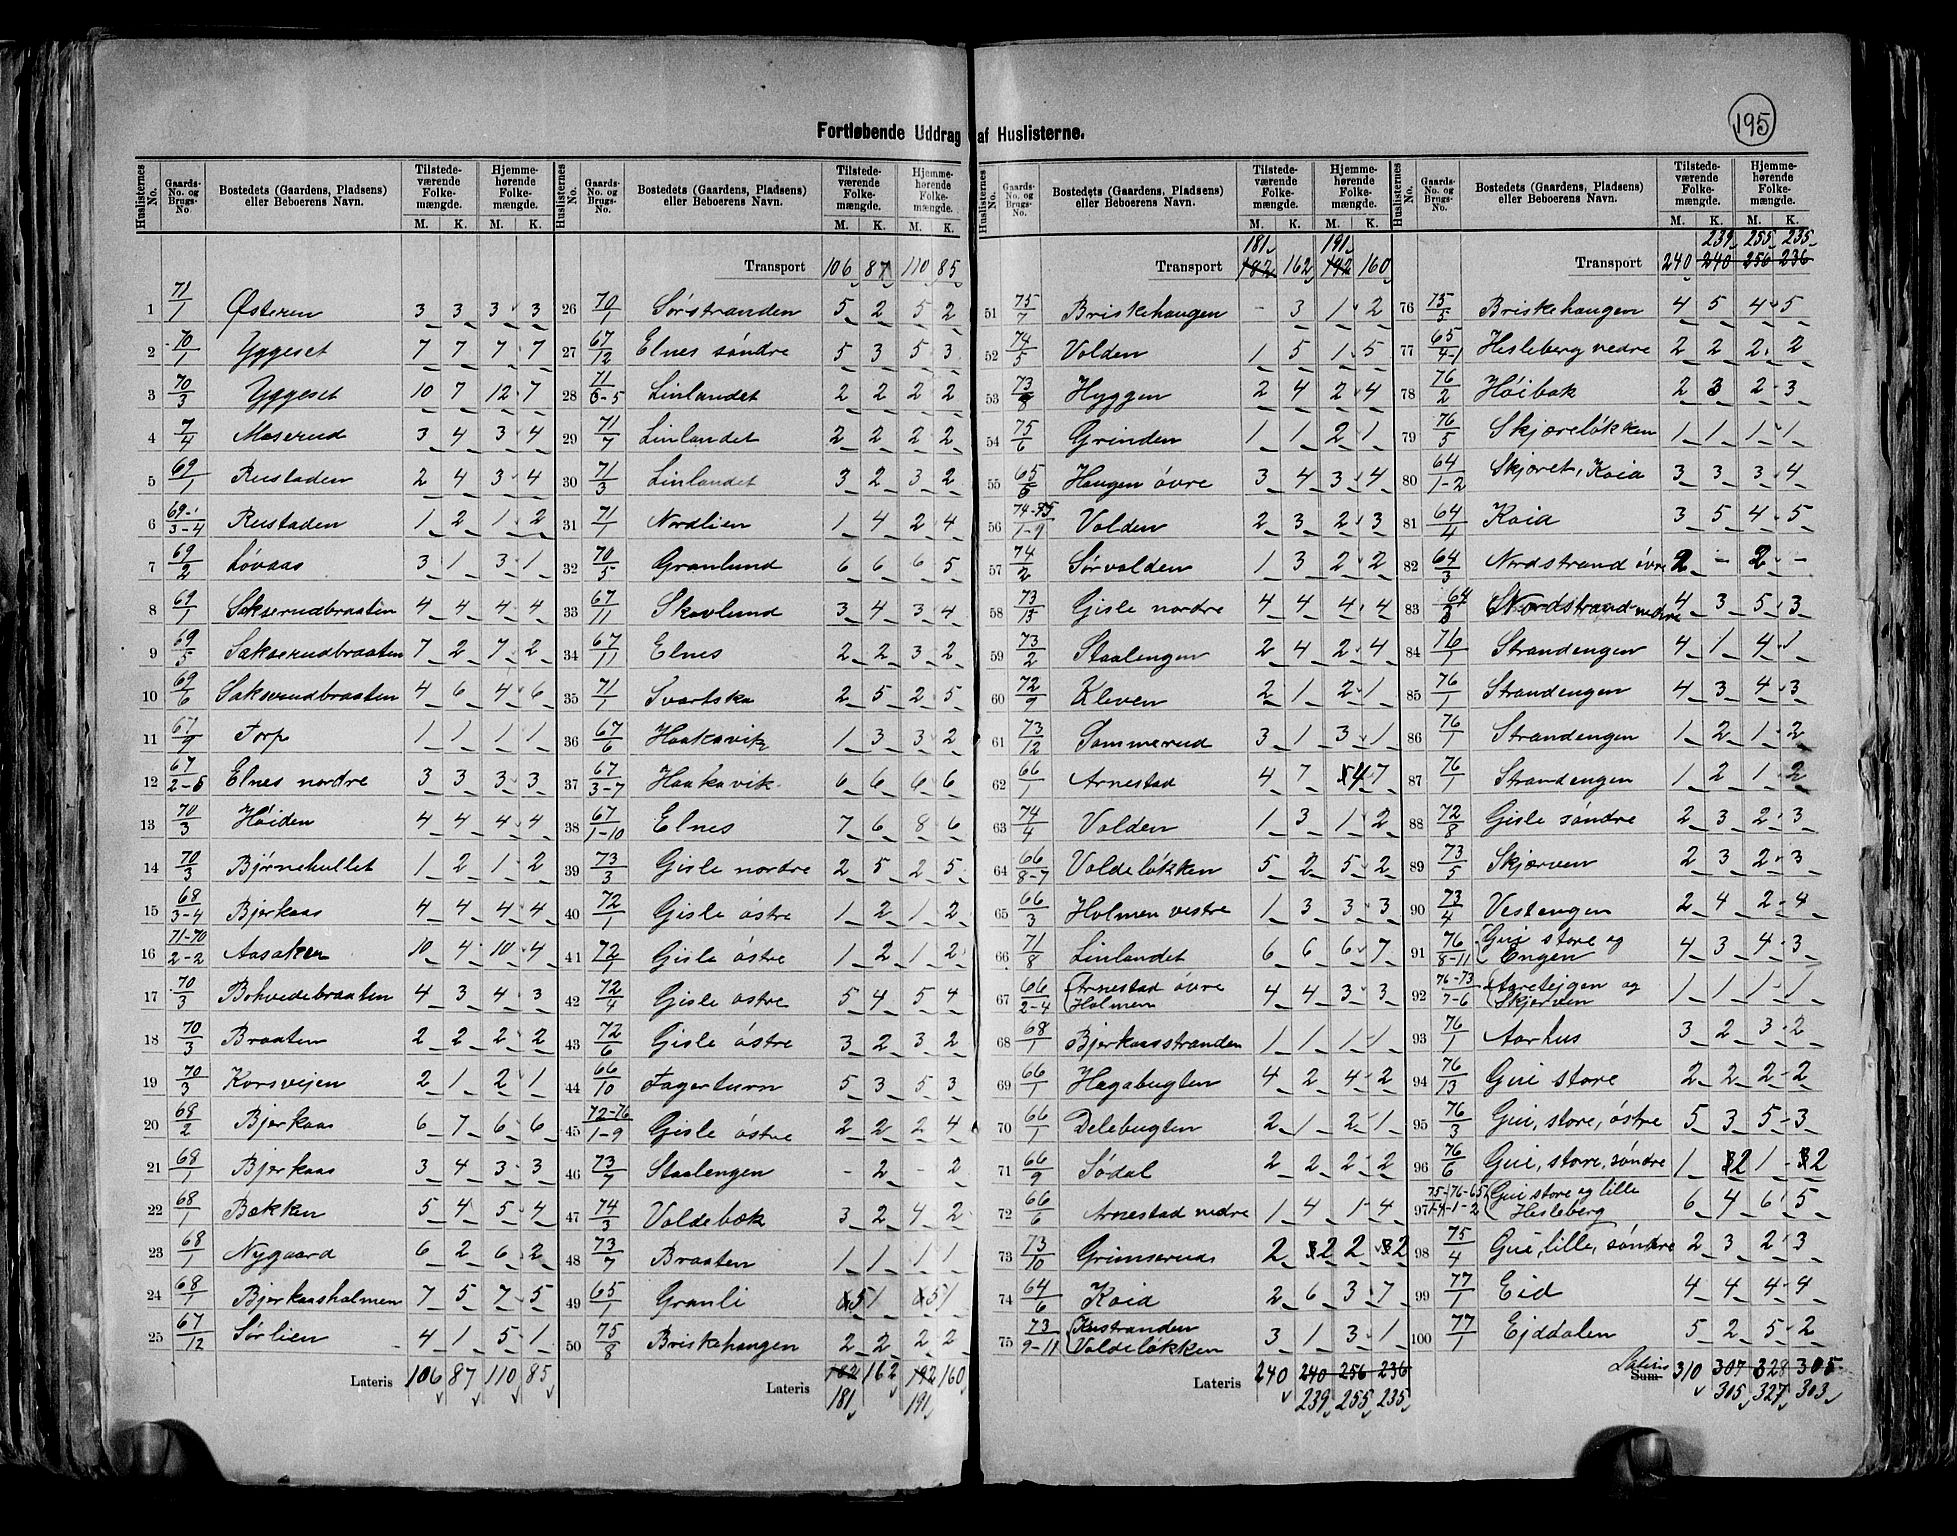 195
Fortløbende Uddrag af Huslisterne.
Huslisternes No. Gaards-No. og Brugs-No. Bostedets (Gaardens, Pladsens) eller Beboerens Navn. Tilstedeværende Folkemængde. M. K. Hjemmehørende Folkemængde. M. K.
1 71/1 Østeren 3 3 3 3
2 70/1 Yggeset 7 7 7 7
3 70/3 Yggeset 10 7 12 7
4 7/4 Maserud 3 4 3 4
5 69/1 Rustaden 2 4 3 4
6 69/3-4 Rustaden 1 2 1 2
7 69/2 Løvaas 3 1 3 1
8 69/1 Sakserudbraaten 4 4 4 4
9 69/5 Sakserudbraaten 7 2 7 2
10 69/6 Sakserudbraaten 4 6 4 6
11 67/9 Torp 1 1 1 1
12 67/2-5 Elnes nordre 3 3 3 3
13 70/3 Høiden 4 4 4 4
14 70/3 Bjørnehullet 1 2 1 2
15 68/3-4 Bjerkaas 4 4 4 4
16 71-70/2-2 Aasaken 10 4 10 4
17 70/3 Bohvedebraaten 4 3 4 3
18 70/3 Braaten 2 2 2 2
19 70/3 Korsvejen 2 1 2 1
20 68/2 Bjerkaas 6 7 6 6
21 68/1 Bjerkaas 3 4 3 3
22 68/1 Bakken 5 4 5 4
23 68/1 Nygaard 6 2 6 2
24 68/1 Bjerkaasholmen 7 5 7 5
25 67/12 Sørlien 4 1 5 1
Lateris 106 87 110 85
Huslisternes No. Gaards-No. og Brugs-No. Bostedets (Gaardens, Pladsens) eller Beboerens Navn. Tilstedeværende Folkemængde. M. K. Hjemmehørende Folkemængde. M. K.
Transport 106 87 110 85
26 70/1 Sørstranden 5 2 5 2
27 67/12 Elnes søndre 5 3 5 3
28 71/6-5 Linlandet 2 2 2 2
29 71/7 Linlandet 2 2 2 2
30 71/3 Linlandet 3 2 3 2
31 71/1 Nordlien 1 4 2 4
32 70/5 Granlund 6 6 6 5
33 67/11 Skovlund 3 4 3 4
34 67/11 Elnes 2 2 3 2
35 71/1 Svartska 2 5 2 5
36 67/6 Haakavik 1 3 3 2
37 67/3-7 Haakavik 6 6 6 6
38 67/1-10 Elnes 7 6 8 6
39 73/3 Gisle nordre 2 5 2 5
40 72/1 Gisle østre 1 2 1 2
41 72/1 Gisle østre 1 2 1 2
42 72/4 Gisle østre 5 4 5 4
43 72/6 Gisle østre 3 2 3 2
44 66/10 Fagerturn 5 3 5 3
45 72-76/1-9 Gisle østre 2 2 2 4
46 73/7 Staalengen - 2 - 2
47 74/3 Voldebæk 3 2 4 2
48 73/7 Braaten 1 1 1 1
49 65/1 Granli 5 1 5 1
50 75/8 Briskehaugen 2 2 2 2
Lateris 182 162 192 160
181 191
Huslisternes No. Gaards-No. og Brugs-No. Bostedets (Gaardens, Pladsens) eller Beboerens Navn. Tilstedeværende Folkemængde. M. K. Hjemmehørende Folkemængde. M. K.
181 191
Transport 182 162 192 160
51 75/7 Briskehaugen - 3 1 2
52 74/5 Volden 1 5 1 5
53 73/8 Hyggen 2 4 2 4
54 75/6 Grinden 1 1 2 1
55 65/6 Haugen øvre 3 4 3 4
56 74-75/1-9 Volden 2 3 2 3
57 74/2 Sørvolden 1 3 2 2
58 73/13 Gisle nordre 4 4 4 4
59 73/2 Staalengen 2 4 2 4
60 72/9 Kleven 2 1 2 1
61 73/12 Sommerud 3 1 3 1
62 66/1 Arnestad 4 7 4 7
63 74/4 Volden 1 3 1 2
64 66/8-7 Voldeløkken 5 2 5 2
65 66/3 Holmen vestre 1 3 3 3
66 71/8 Linlandet 6 6 6 7
67 66/2-4 Arnestad øvre Holmen 4 4 3 3
68 68/1 Bjerkaasstranden 1 1 1 1
69 66/1 Hagabugten 4 2 4 2
70 66/1 Delebugten 2 1 2 1
71 66/9 Södal 2 2 2 2
72 66/6 Arnestad nedre 1 4 1 4
73 73/10 Grimserud 2 2 2 2
74 64/6 Koia 2 6 3 7
75 73/9-11 Kustranden Voldeløkken 3 1 3 1
Lateris 240 240 256 236
239 255 235
Huslisternes No. Gaards-No. og Brugs-No. Bostedets (Gaardens, Pladsens) eller Beboerens Navn. Tilstedeværende Folkemængde. M. K. Hjemmehørende Folkemængde. M. K.
239 255 235
Transport 240 240 256 236
76 75/5 Briskehaugen 4 5 4 5
77 65/4-1 Hesleberg nedre 2 2 2 2
78 76/2 Høibak 2 3 2 3
79 76/5 Skjæreløkken 1 1 1 1
80 64/1-2 Skjæret, Koia 3 3 3 4
81 64/4 Koia 3 5 4 5
82 64/3 Nordstrand øvre 2 - 2 -
83 64/3 Nordstrand nedre 4 3 5 3
84 76/1 Strandengen 4 1 4 1
85 76/1 Strandengen 4 3 4 3
86 76/1 Strandengen 1 2 1 2
87 76/1 Strandengen 1 2 1 2
88 72/8 Gisle søndre 2 3 2 3
89 73/5 Skjærven 2 3 2 3
90 73/4 Vestengen 2 4 2 4
91 76/8-11 Gui store og Engen 4 3 4 3
92 76-73/7-6 Aareteigen og Skjerven 1 1 1 1
93 76/1 Aarhus 3 2 3 2
94 76/13 Gui store 2 2 2 2
95 76/3 Gui, store, østre 5 3 5 3
96 76/6 Gui, store, søndre 1 2 1 2
97 75-76-65/1-4-1-2 Gui store og lille Hesleberg 6 4 6 5
98 75/4 Gui, lille, søndre 2 3 2 3
99 77/1 Eid 4 4 4 4
100 77/1 Ejddalen 5 2 5 2
Lateris
Sum 310 307 328 305
305 327 303